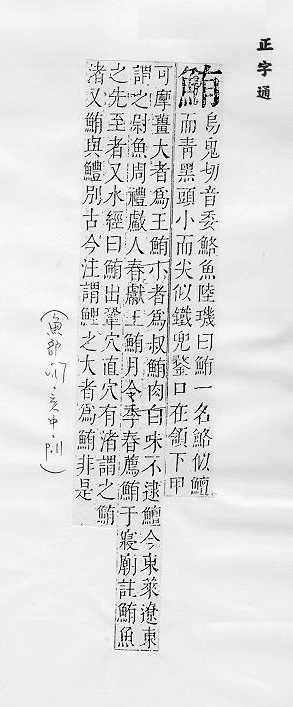 正字通
鮪 烏鬼切音委鮥魚陸璣曰鮪一名鮥似鱣
而青黑頭小而尖似鐵兜鍪口在頷下甲
可摩薑大者爲王鮪小者爲叔鮪肉白味不逮鱣今東萊遼東
謂之尉魚周禮人春獻王鮪月令季春薦鮪于寢廟註鮪魚
之先至者又水經曰鮪出鞏穴直穴有渚謂之鮪
渚又鮪與鱧別古今注謂鯉之大者爲鮪非是
(魚部 亥中 P.11)